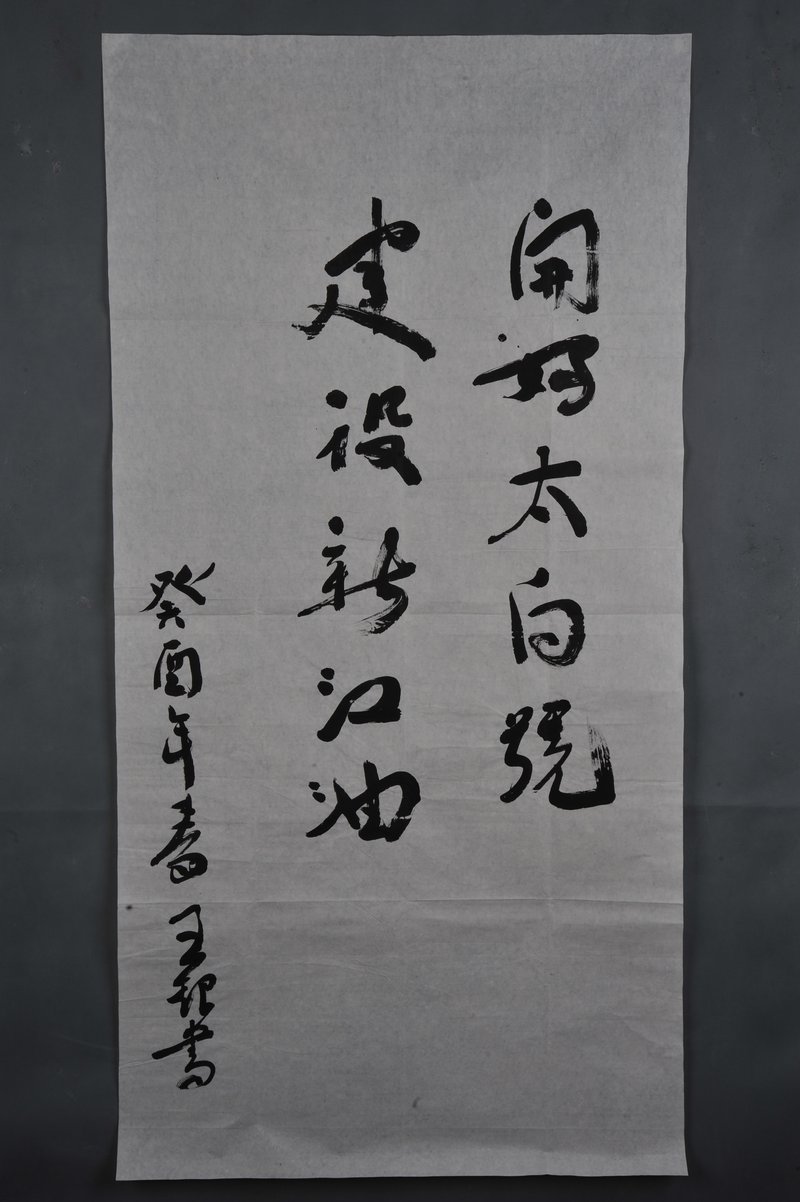 開好太白號
建设新江油
癸酉年春 王觀書